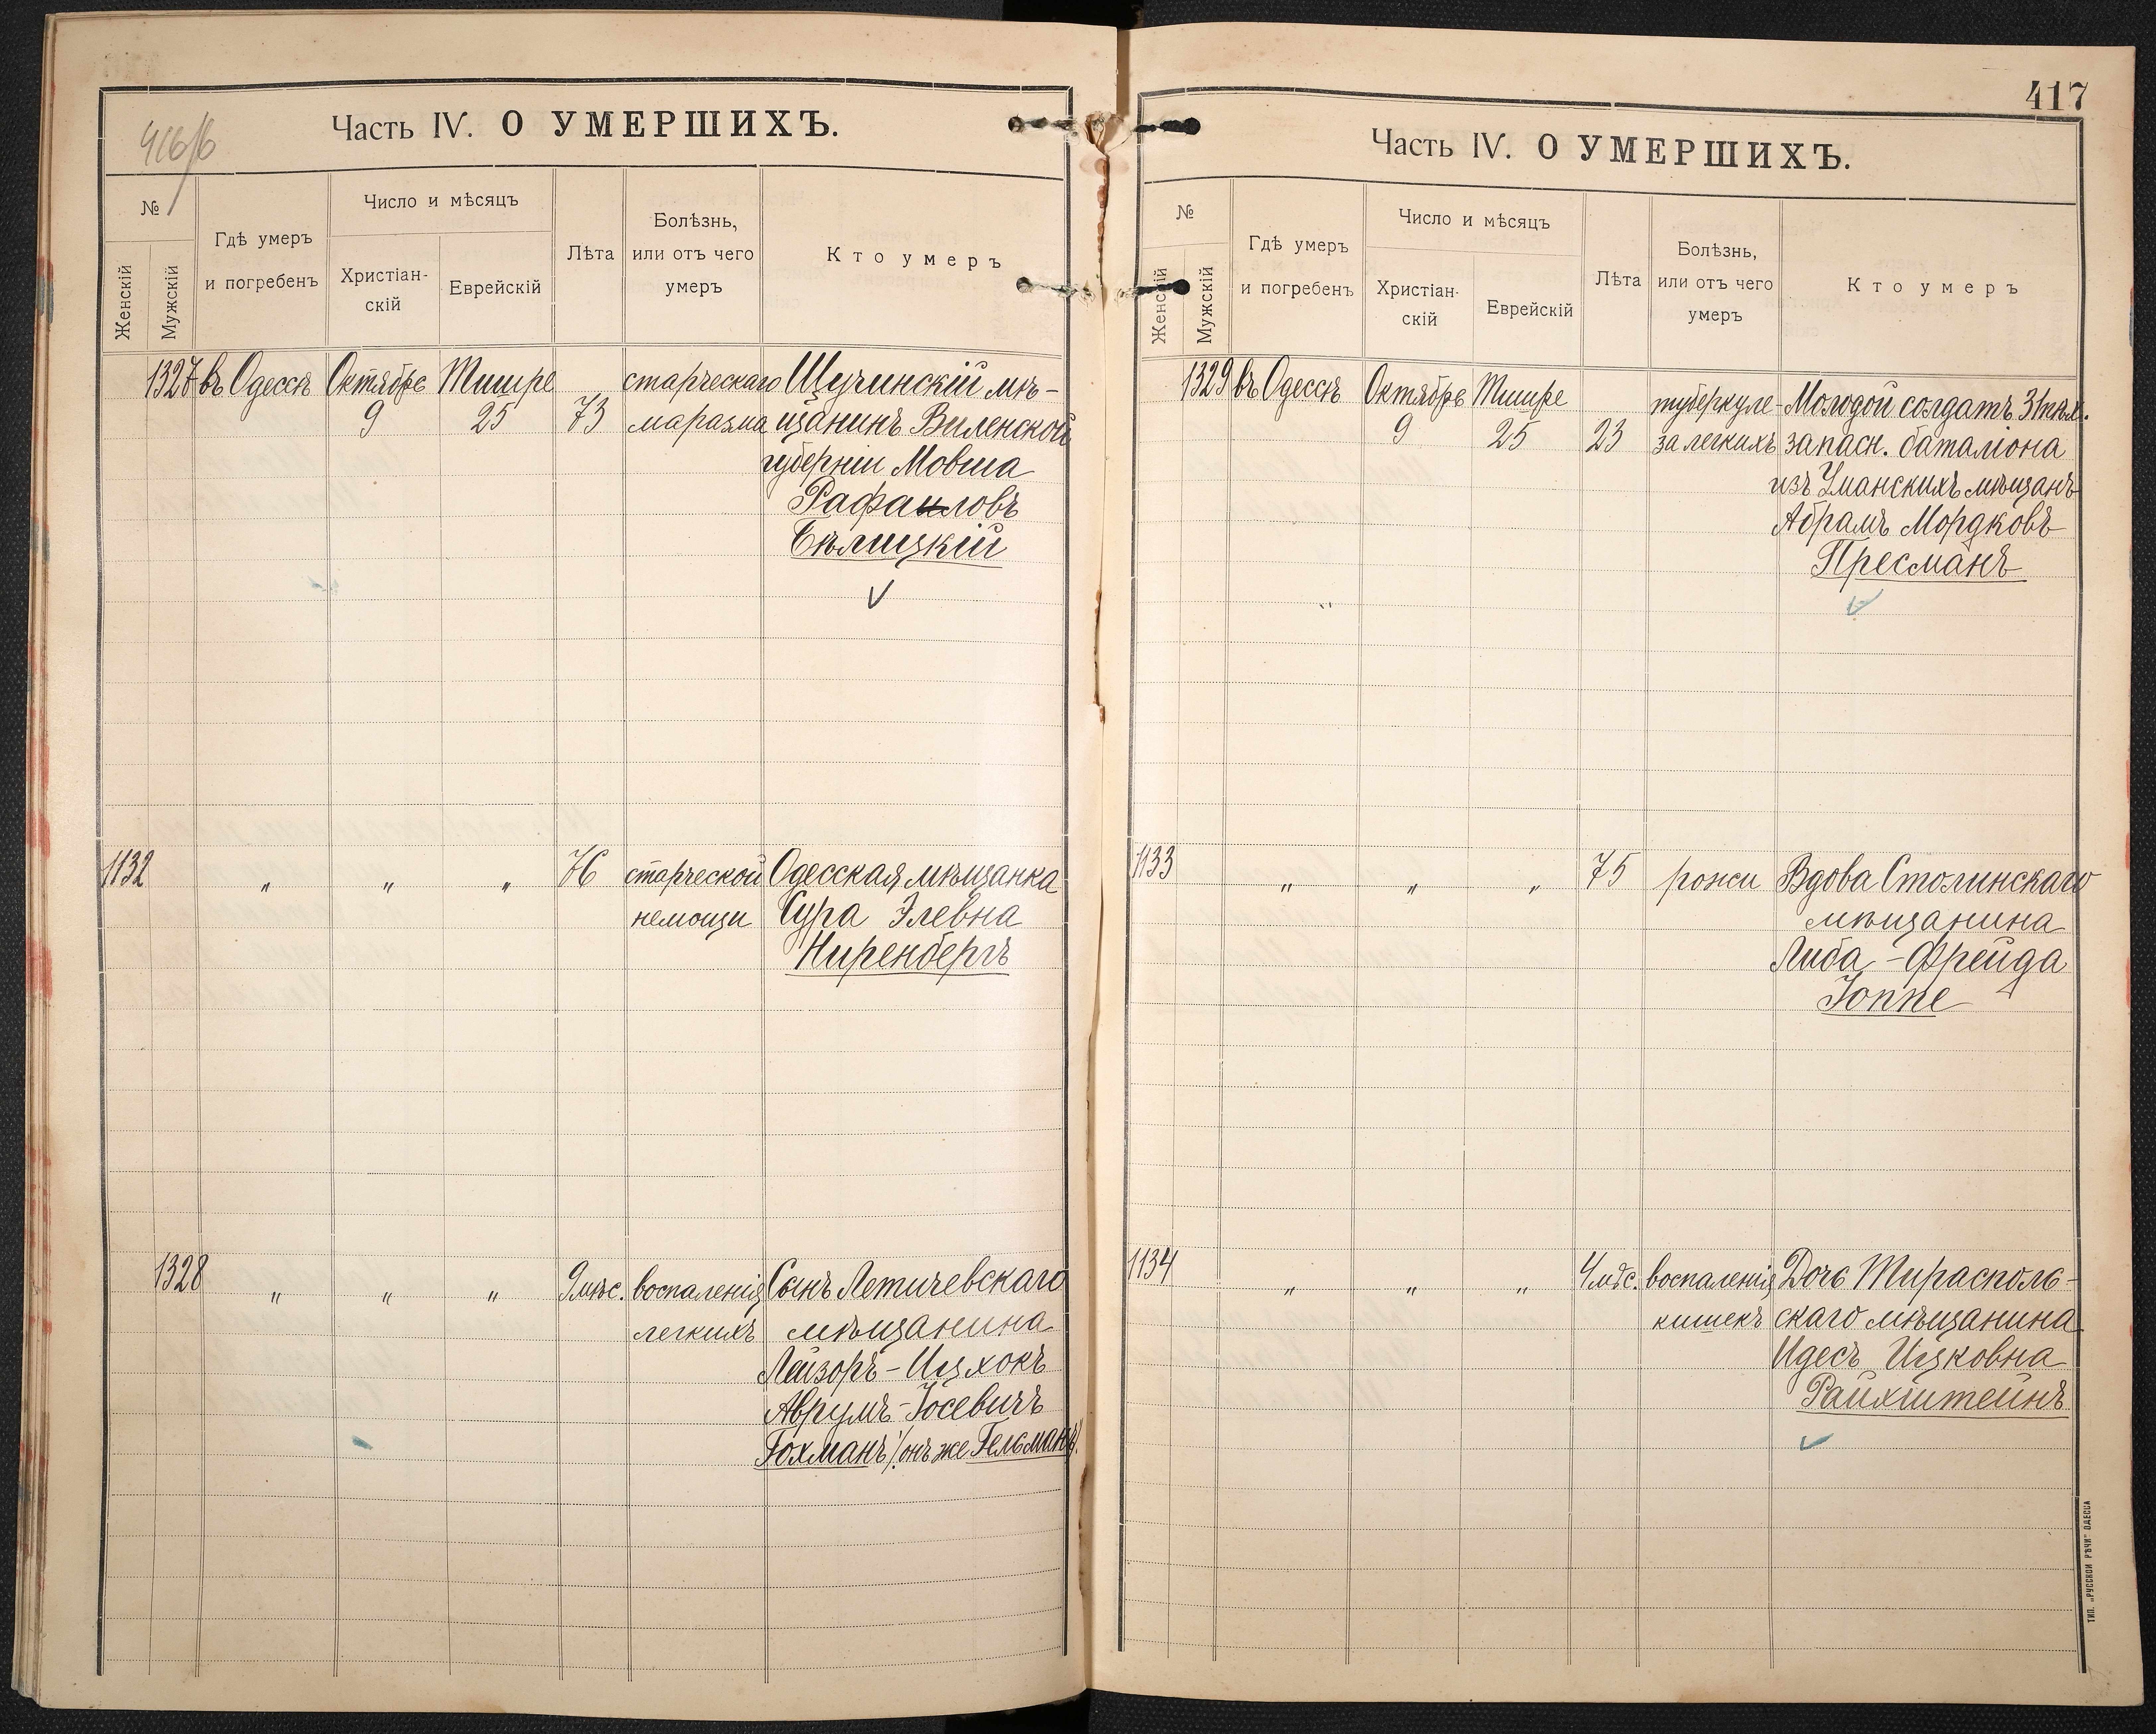 416/б
Часть IV. О УМЕРШИХЪ.
№
Женскій
Мужскій
Гдѣ умеръ
и погребенъ
Число и мѣсяцъ
Христіан-
скій
Еврейскій
Лѣта
Болѣзнь,
или отъ чего
умеръ
Кто умеръ
1327 въ Одессѣ Октября Тишре старческаго Щучинскій мѣ-
9 25 73 маразма щанинъ Виленской
губерніи Мовша
Рафаиловъ
Бѣлицкій
1132 " " " 76 старческой Одесская мѣщанка
немощи Сура Элевна
Ниренбергъ
1328 " " " 9 мѣс. воспаленія Сынъ Летичевскаго
легкихъ мѣщанина
Лейзоръ-Ицхокъ
Аврумъ-Іосевичъ
Гохманъ (онъ же Гельманъ)
417
Часть IV. О УМЕРШИХЪ.
№
Женскій
Мужскій
Гдѣ умеръ
и погребенъ
Число и мѣсяцъ
Христіан-
скій
Еврейскій
Лѣта
Болѣзнь,
или отъ чего
умеръ
Кто умеръ
1329 въ Одессѣ Октября Тишре туберкуле- Молодой солдатъ 31 пѣх.
9 25 23 за легкихъ запасн. баталіона
изъ Уманскихъ мѣщанъ
Абрамъ Мордковъ
Пресманъ
1133 " " " 75 рожи Вдова Столинскаго
мѣщанина
Либа-Фрейда
Іоппе
1134 " " " 4 мѣс. воспаленія Дочь Тирасполь-
кишекъ скаго мѣщанина
Идесъ Ицковна
Райхштейнъ
ТИП. „РУССКОЙ РѢЧИ" ОДЕССА